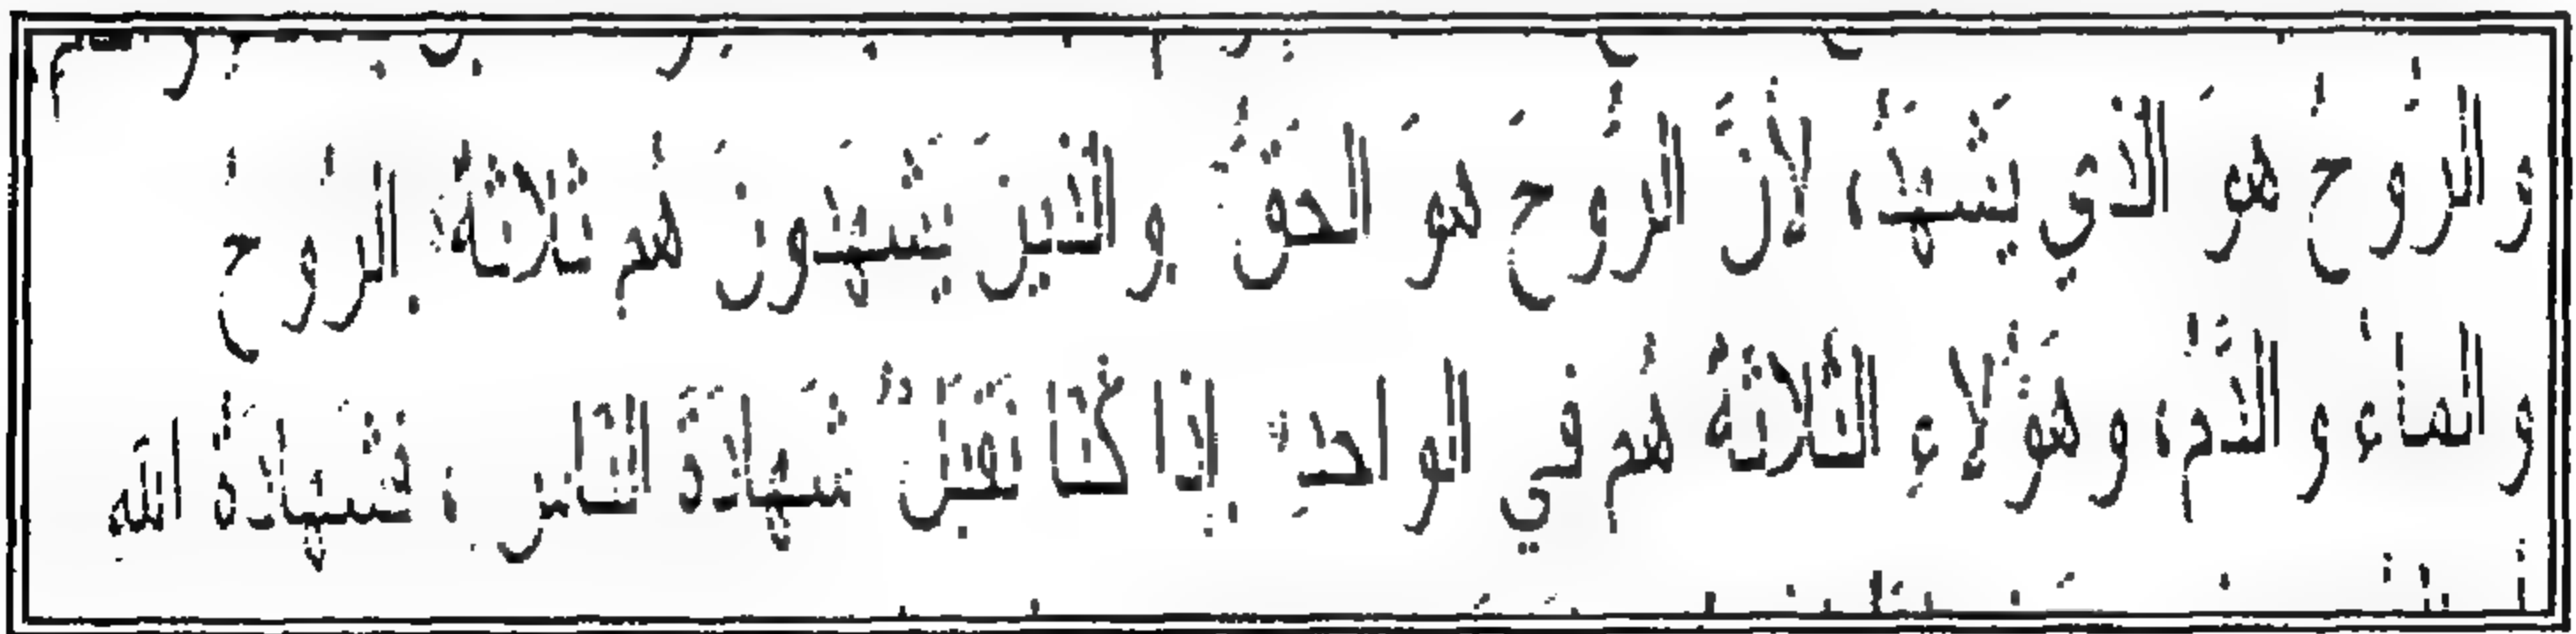 والرُّوحُ هوَ الَّذي يَشهَدُ، لأنَّ الرُّوحَ هوَ الحَقُّ. والَّذينَ يَشهَدونَ هُم ثلاثةٌ. الرُّوحُ
والماءُ والدَّمُ، وهَؤُلاءِ الثَّلاثَةُ هُم في الواحدِ. إذا كُنَّا نَقبَلُ شَهادَةَ النَّاسِ، فشَهادَةُ اللهِ